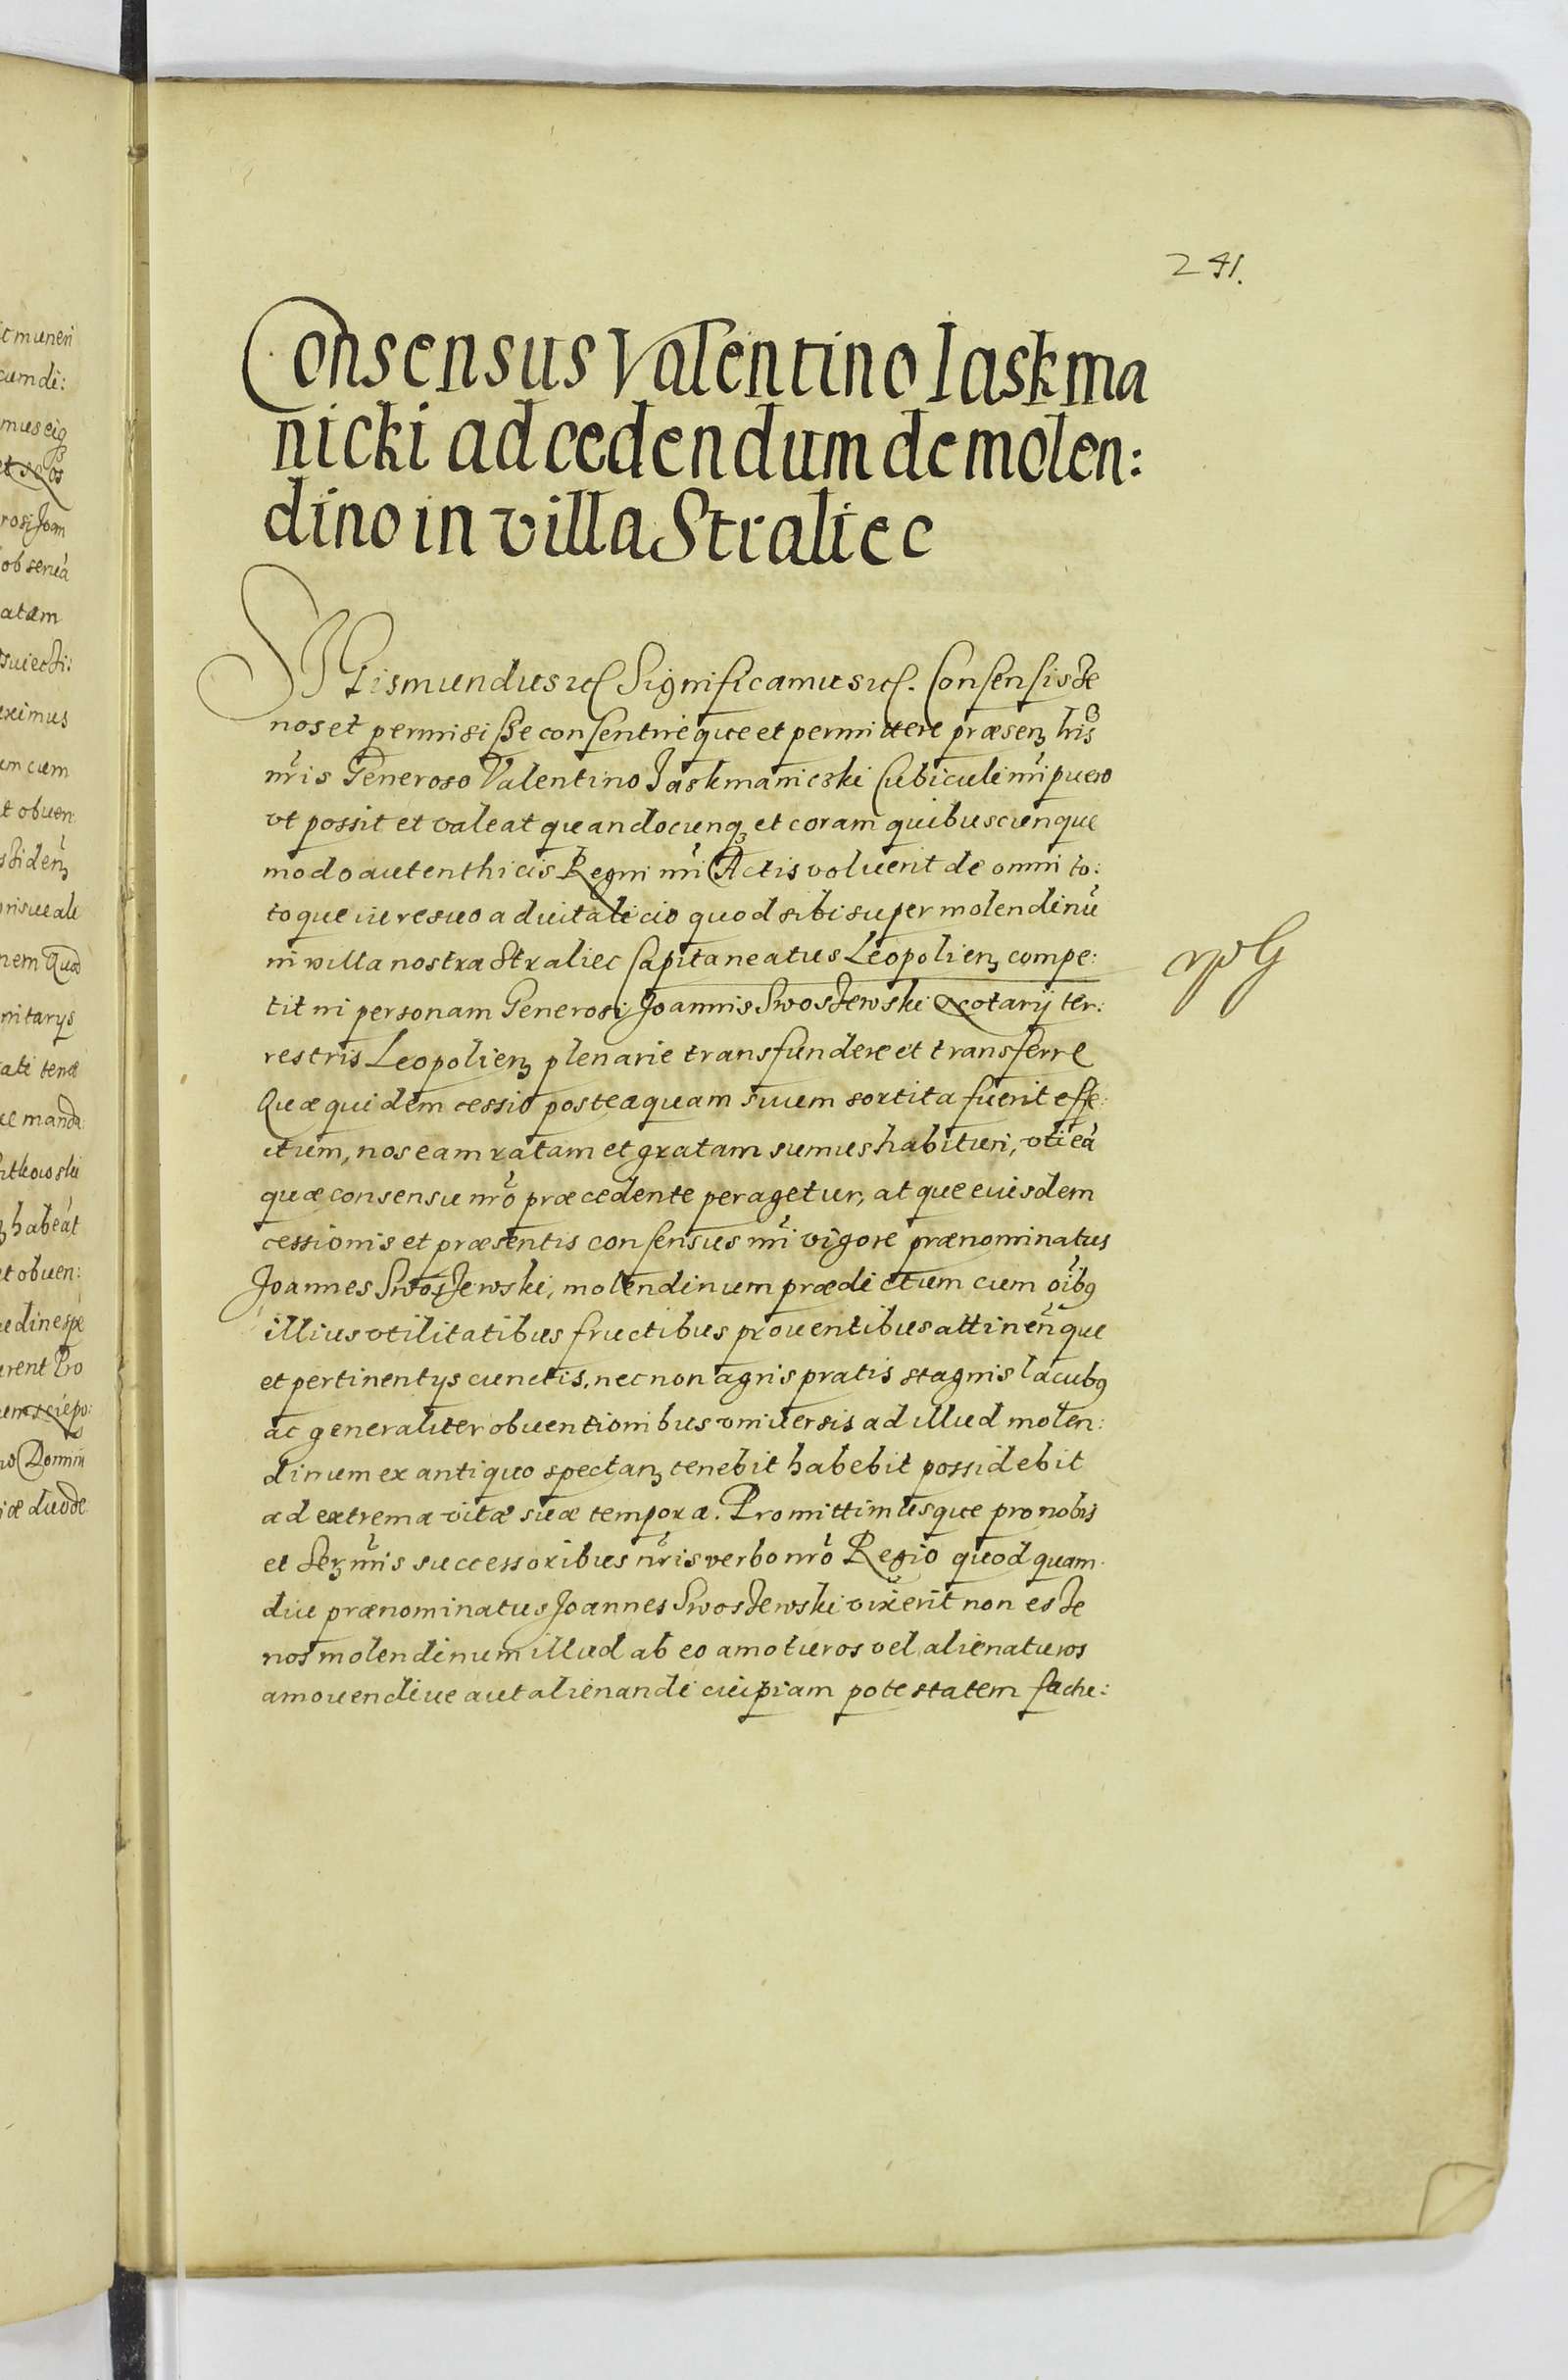 241.
Consensus Valentino Iaskma
nicki ad cedendum de molen:
dino in villa Straliec
SIGismundus etc Significamus etc. Consensisse
nos et permisisse consentireque et permittere praesenz lris
nris Generoso Valentino Jaskmaniczki Cubiculi nri puero
vt possit et valeat quandocunqz et coram quibuscunque
modo autenthicis Regni nri Actis voluerit de omni to:
toque iure suo aduitalicio quod sibi super molendinū
in villa nostra Straliec Capitaneatus Leopolienz compe:
tit in personam Generosi Joannis Swoszewski Notarij ter:
restris Leopolienz plenarie transfundere et transferre
Quae quidem cessio posteaquam suum sortita fuerit effe:
ctum, nos eam ratam et gratam sumus habituri, vti eā
quae consensu nro praecedente peragetur, atque eiusdem
cessionis et praesentis consensus nri vigore praenominatus
Joannes Swoszewski, molendinum praedictum cum oibus
illius vtilitatibus fructibus prouentibus attinenque
et pertinentys cunctis, nec non agris pratis stagnis lacubus
ac generaliter obuentionibus vniuersis ad illud molen:
dinum ex antiquo spectanz tenebit habebit possidebit
ad extrema vitae suae tempora. Promittimusque pro nobis
et Serzmis successoribus nris verbo nro Regio quod quam
diu praenominatus Joannes Swoszewski vixerit non esse
nos molendinum illud ab eo amoturos vel alienaturos
amouendiue aut alienandi cuipiam potestatem factu: